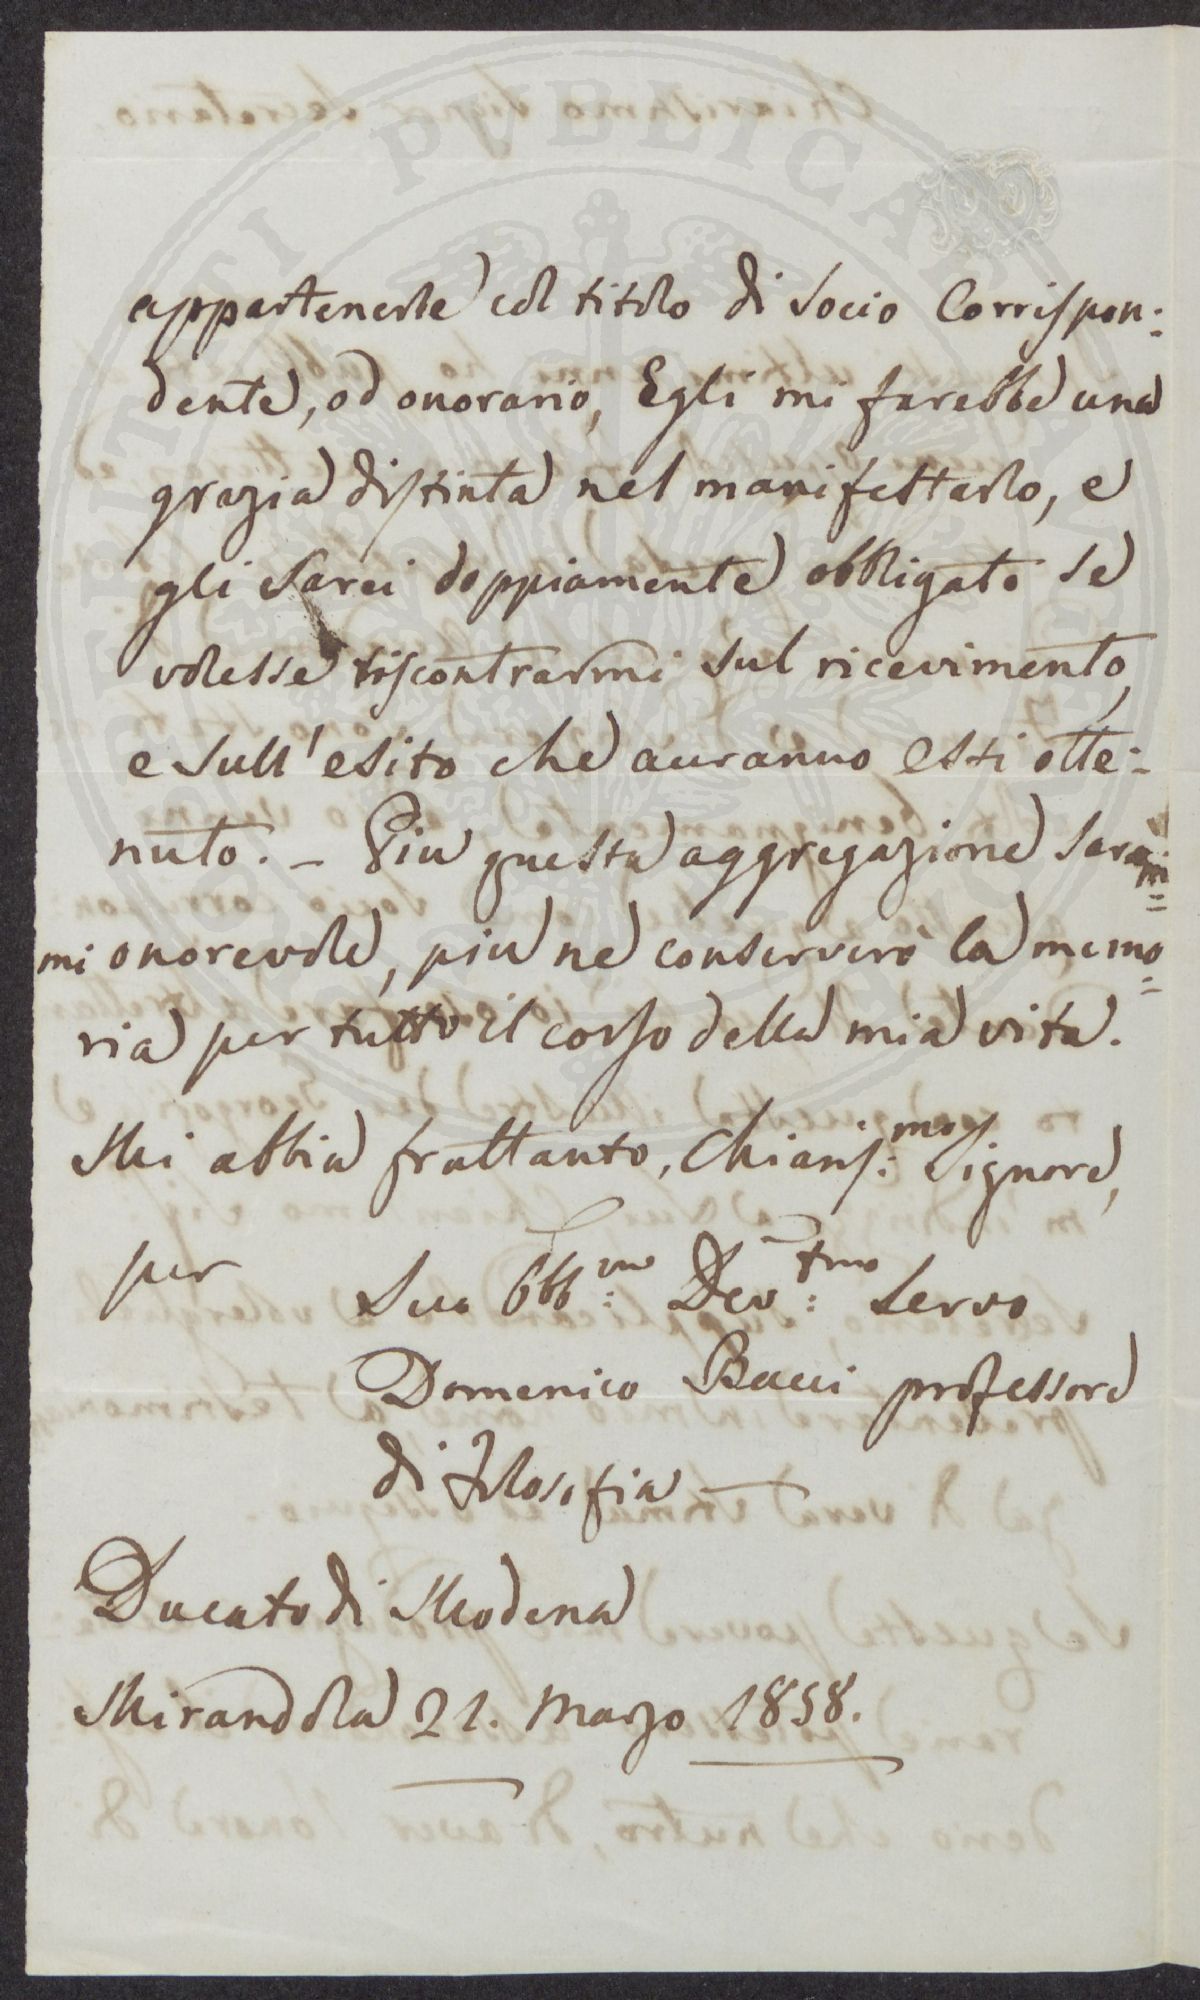 appartenerle col titolo di Socio Corrispon:
dente, od onorario, Egli mi farebbe una
grazia distinta nel manifestarlo, e
gli sarei doppiamente obbligato se
volesse riscontrarmi sul ricevimento,
e sull'esito che avranno essi otte:
nuto. – Più questa aggregazione sara
mi onorevole, più ne conserverò la memo=
ria per tutto il corso della mia vita.
Mi abbia frattanto, Chiaris:mo Signore,
per Suo Obb:mo Dev:tmo Servo
Domenico Bacci professore
di Filosofia
Ducato di Modena
Mirandola 21. Marzo 1858.